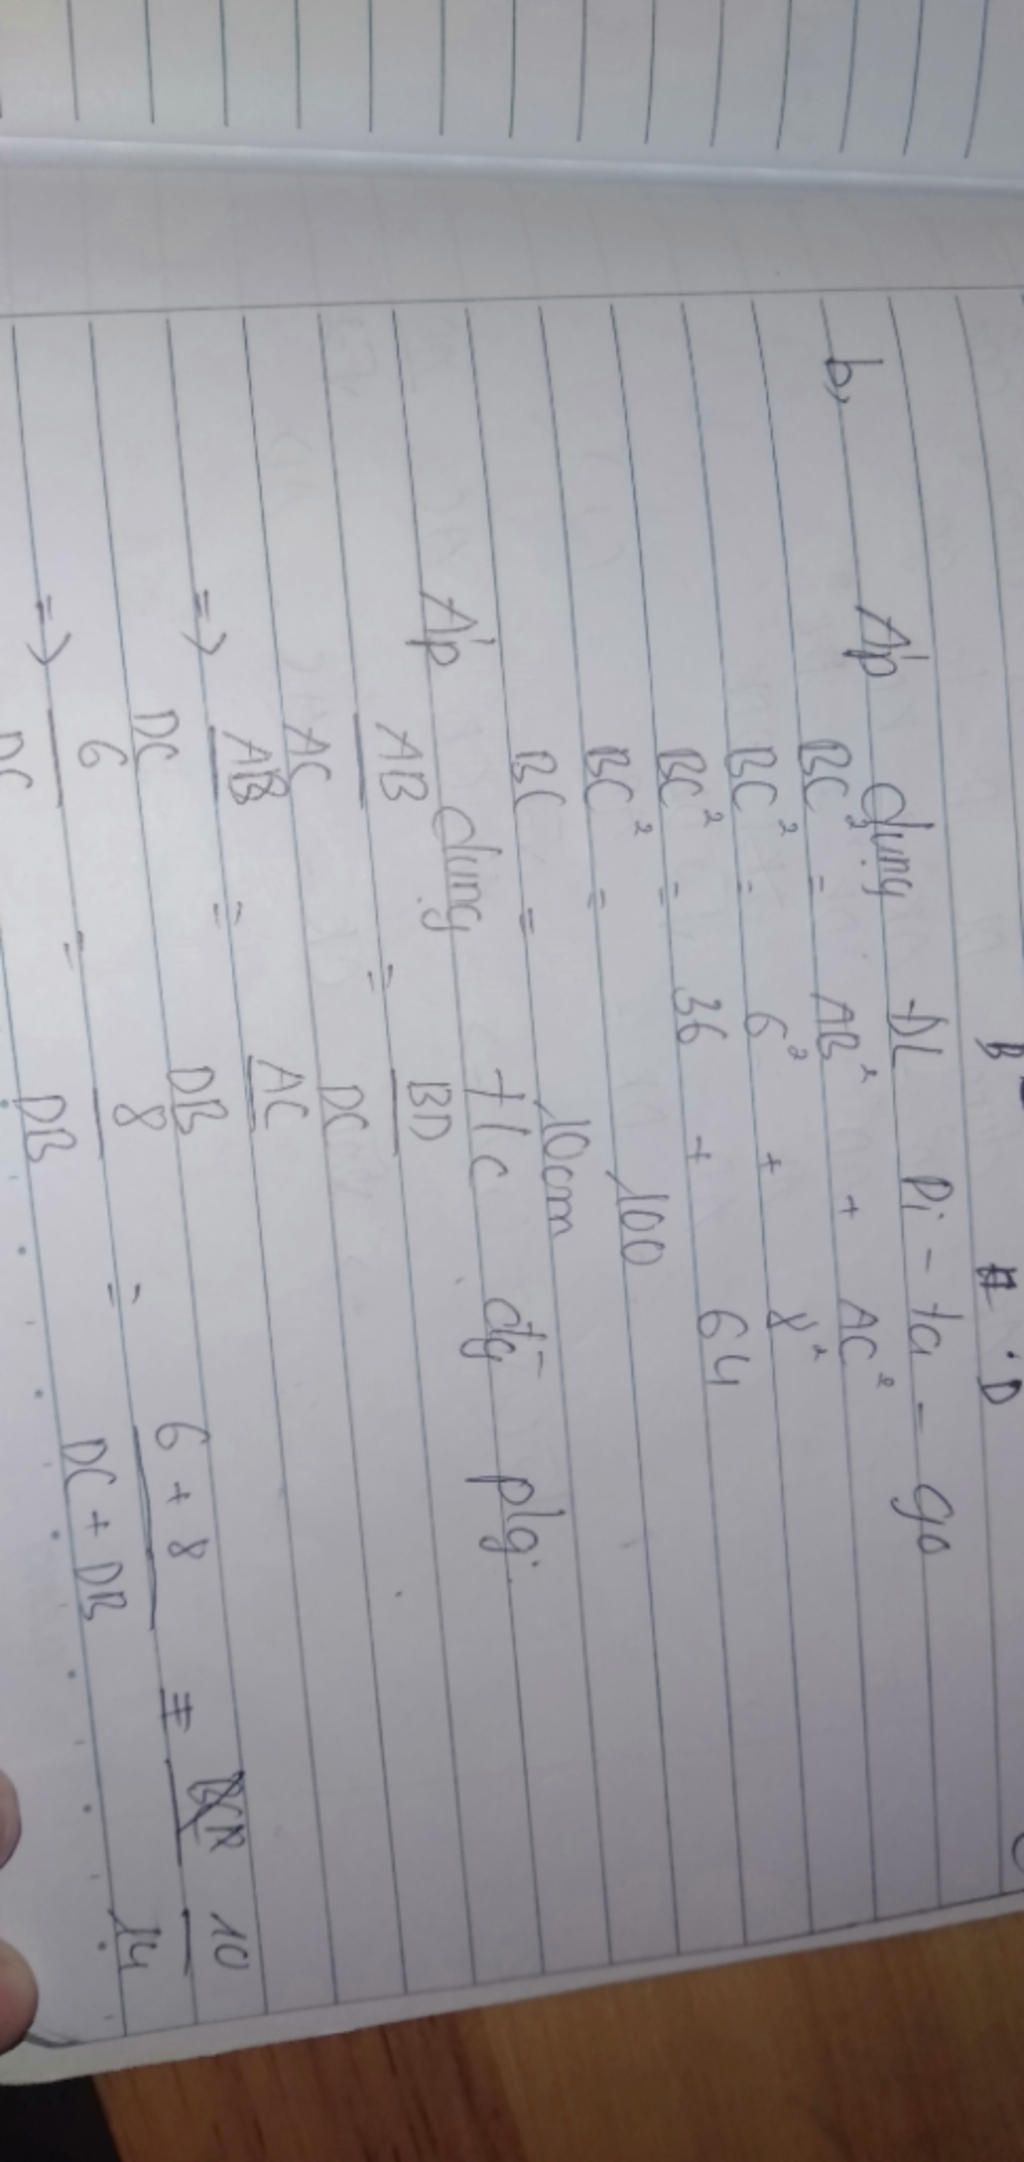 B H D
b, Áp dụng ĐL Pi - ta - go
BC² = AB² + AC²
BC² = 6² + 8²
BC² = 36 + 64
BC² = 100
BC = 10cm
Áp dụng t/c đg p/g
AB = BD
AC DC
=> AB = AC
DC DB
=> 6 = 8 = 6 + 8 = 10
DC DB DC + DB 14